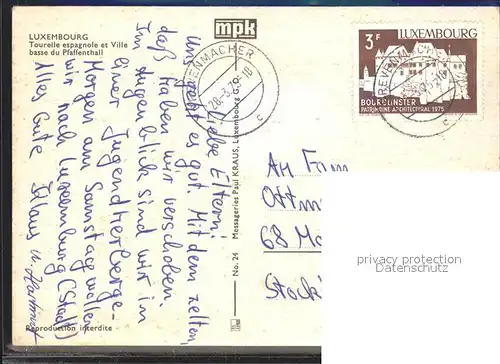 LUXEMBOURG
Tourelle espagnole et Ville
basse du Pfaffenthall
mpk
Liebe Eltern!
Uns geht es gut. Mit dem zelten,
daß haben wir verschoben.
Im Augenblick sind wir in
einer Jugendherberge.
Morgen am Samstag wollen
wir nach Luxemburg (Stadt)
Alles Gute Klaus u.
Reproduction interdite
No. 24 Messageries Paul KRAUS, Luxembourg G.D.
GREVENMACHER
3 F LUXEMBOURG
BOURGLINSTER
PATRIMOINE ARCHITECTURAL 1975
GREVENMACHER
An Fam
Ottm
68 Ma
Stock
privacy protection
Datenschutz